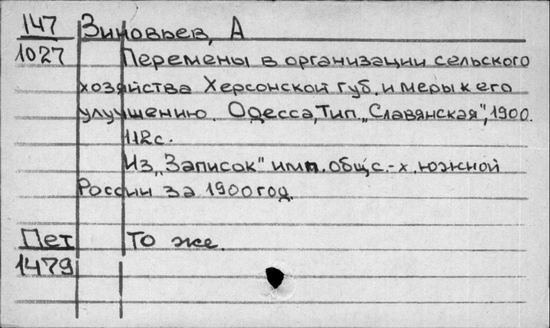 147 Зиновьев, А
1027 Перемены в организации сельского
хозяйства Херсонской губ. и меры к его
улучшению. Одесса, Тип. „Славянская", 1900.
112с.
Из „Записок" имп. общ. с.-х. южной
России за 1900 год.
Пет То же.
1479